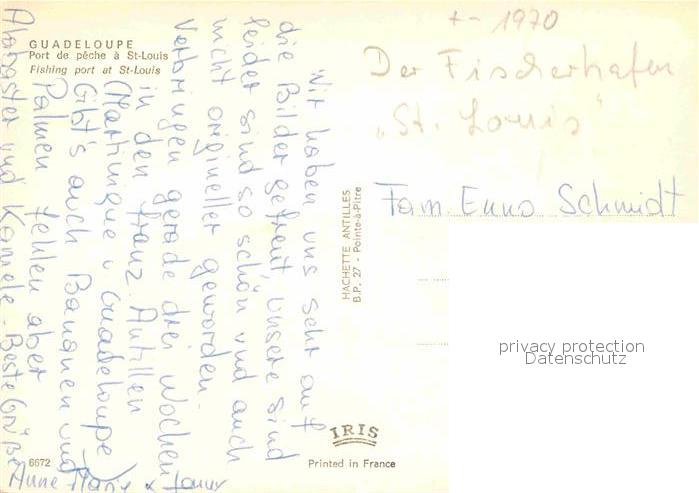 GUADELOUPE
Port de pêche à St-Louis
Fishing port at St-Louis
Wir haben uns sehr auf
die Bilder gefreut, unsere sind
leider sind so schön und auch
nicht origineller geworden.
Verbringen gerade drei Wochen
in den franz. Antillen
(Martinique u. Guadeloupe
Gibt's auch Bananen und
Palmen fehlen aber
Alabaster und Kamele. Beste Grüße
Anne Marie &
6672
HACHETTE ANTILLES
B.P. 27 - Pointe-à-Pitre
IRIS
Printed in France
+- 1970
Der Fischerhafen
„St. Louis"
Fam. Enno Schmidt
privacy protection
Datenschutz